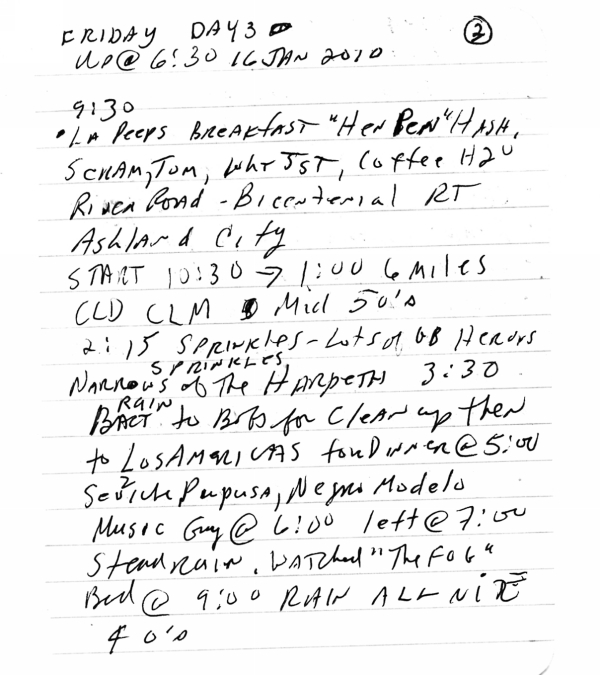 FRIDAY DAY3 ②
UP@ 6:30 16 JAN 2010
9:30
• LA Peeps BREAKFAST "Hen Pen" HASH,
SCRAM, TOM, WHT TST, Coffee H2O
River Road - Bicentenial RT
Ashland City
START 10:30 → 1:00 6 miles
CLD CLM Mid 50's
2:15 SPRINKLES - Lots of GB Herons
SPRINKLES
NARROWS of The HARPETH 3:30
RAIN
BACT to Bobs for Clean up then
to LOS AMERICAAS for DINNER @ 5:00
Seviche 2 Pupusa, Negro Modelo
Music Guy @ 6:00 left @ 7:00
Stead rain. WATched "The FOG"
Bed @ 9:00 RAIN ALL NITE
40's